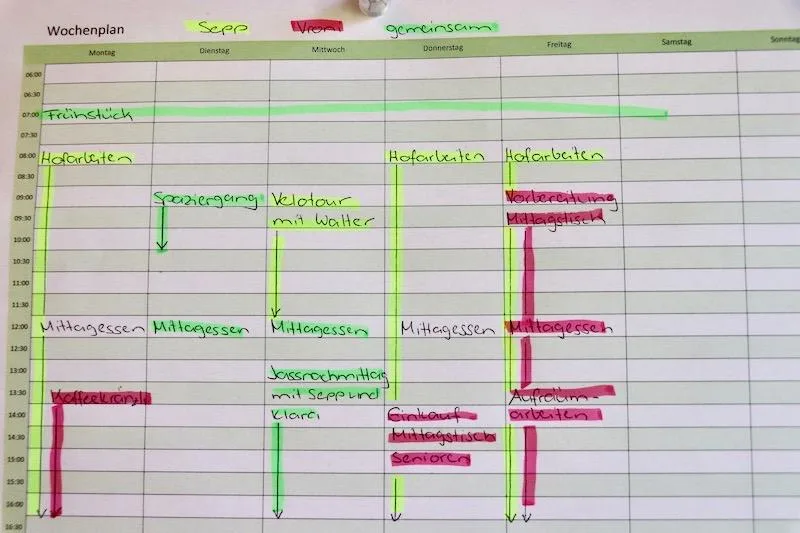 Wochenplan Sepp Vroni gemeinsam
Montag Dienstag Mittwoch Donnerstag Freitag Samstag Sonntag
06:00
06:30
07:00 Frühstück
07:30
08:00 Hofarbeiten Hofarbeiten Hofarbeiten
08:30
09:00 Spaziergang Velotour Vorbereitung
09:30 mit Walter Mittagstisch
10:00
10:30
11:00
11:30
12:00 Mittagessen Mittagessen Mittagessen Mittagessen Mittagessen
12:30
13:00 Jassnachmittag
13:30 Kaffeekränzli mit Sepp und Aufräum-
14:00 Klara Einkauf arbeiten
14:30 Mittagstisch
15:00 Senioren
15:30
16:00
16:30